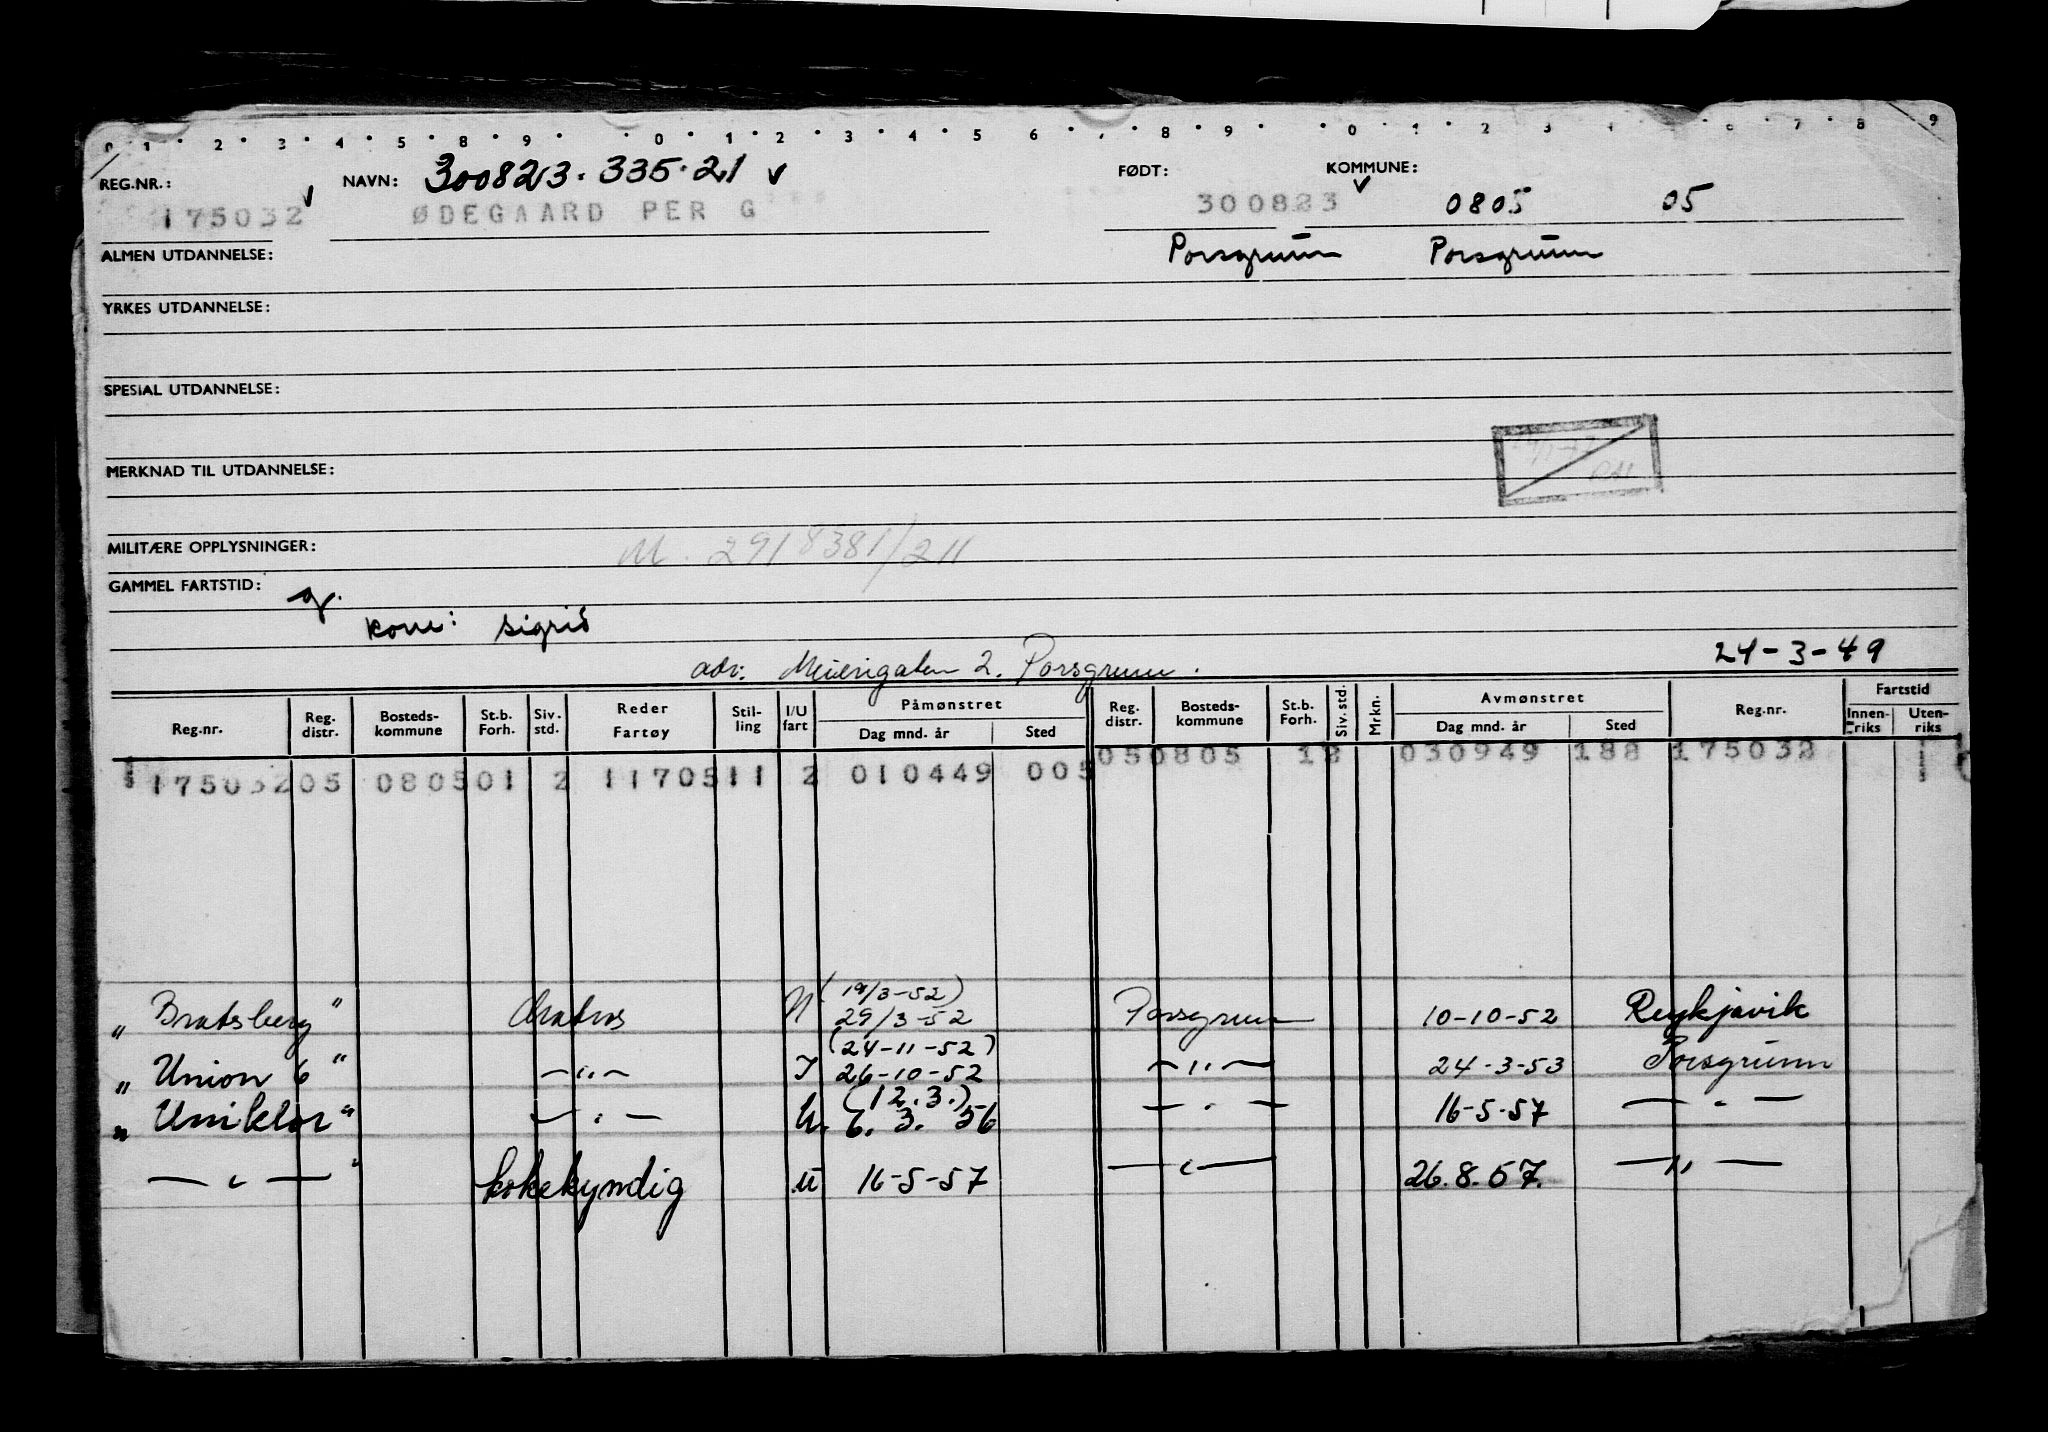 0 1 2 3 4 5 8 9 0 1 2 3 4 5 6 8 9 0 1 2 3 6 7 8 9
REG.NR.: NAVN: 300823.335.21 FØDT: KOMMUNE:
175032 ØDEGAARD PER G 300823 0805 05
ALMEN UTDANNELSE: Porsgrunn Porsgrunn
YRKES UTDANNELSE:
SPESIAL UTDANNELSE:
MERKNAD TIL UTDANNELSE:
MILITÆRE OPPLYSNINGER: M. 2918381/211
GAMMEL FARTSTID:
Kone: Sigrid
adr: Meierigaten 2. Porsgrunn. 24-3-49
Reg.nr. Reg. distr. Bosteds-kommune St.b. Forh. Siv. std. Reder Fartøy Stil-ling I/U fart Påmønstret Dag mnd. år Sted Reg. distr. Bosteds-kommune St.b. Forh. Siv. std. Mrkn. Avmønstret Dag mnd. år Sted Reg.nr. Fartstid Innen-riks Uten-riks
175032 05 0805 01 2 11705 11 2 010449 005 05 0805 12 030949 188 175032
„ Bratsberg " (19/3-52) 29/3-52 Porsgrunn 10-10-52 Reykjavik
„ Union 6 " — " — I (24-11-52) 26-10-52 — " — 24-3-53 Porsgrunn
„ Uniklor " — " — U. (12.3.) 6. 3. 56 — " — 16-5-57 — " —
— " — " kokekyndig U 16-5-57 — " — 26.8.57. — " —